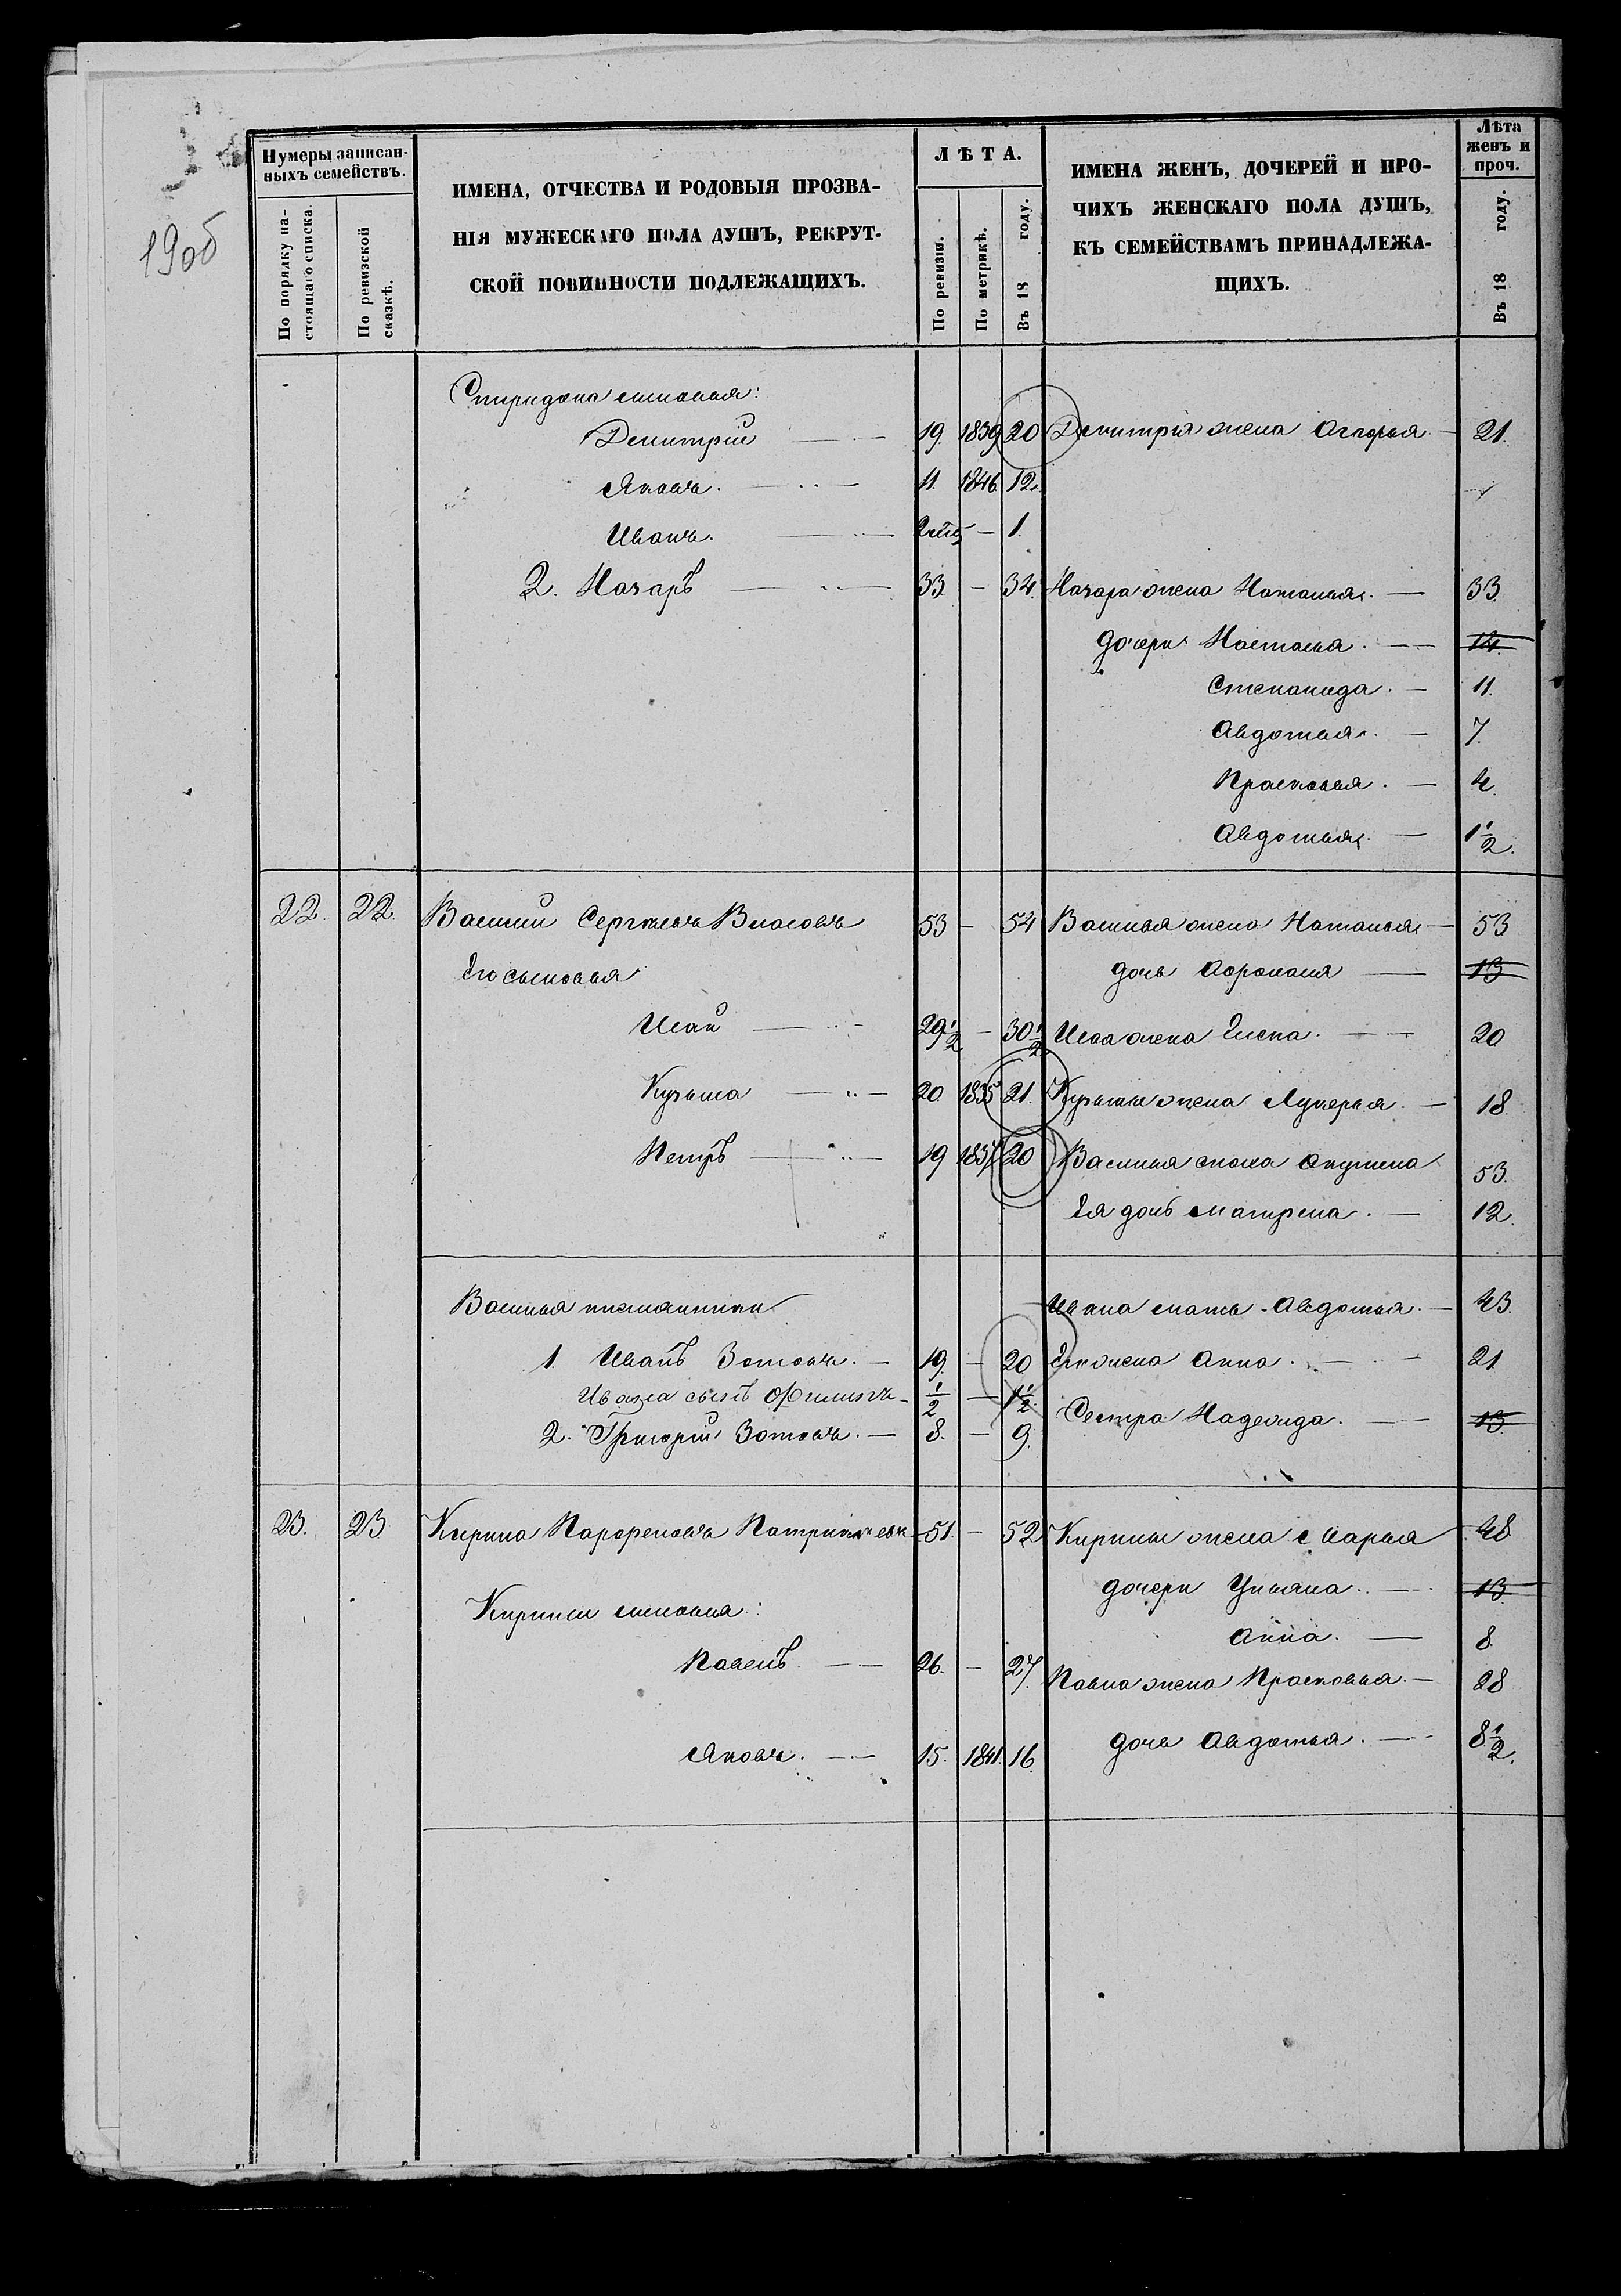 190б
Нумеры записан-
ныхъ семействъ.
По порядку на-
стоящаго списка.
По ревизской
сказкѣ.
ИМЕНА, ОТЧЕСТВА И РОДОВЫЯ ПРОЗВА-
НІЯ МУЖЕСКАГО ПОЛА ДУШЪ, РЕКРУТ-
СКОЙ ПОВИННОСТИ ПОДЛЕЖАЩИХЪ.
ЛѢТА.
По ревизіи.
По метрикѣ.
Въ 18 году.
ИМЕНА ЖЕНЪ, ДОЧЕРЕЙ И ПРО-
ЧИХЪ ЖЕНСКАГО ПОЛА ДУШЪ,
КЪ СЕМЕЙСТВАМЪ ПРИНАДЛЕЖА-
ЩИХЪ.
Лѣта
женъ и
проч.
Въ 18 году.
Спиридона сыновья:
Дмитрій 19. 1839 20 Дмитрія жена 21.
Яковъ. 11. 1846. 12.
Иванъ. — 1.
2. Назаръ 33. — 34. Назара жена Наталья. 33.
дочери Настасья. 14.
Степанида. 11.
Авдотья. 7.
Прасковья. 4.
Авдотья. 1 1/2.
22. 22. Василій Сергѣевъ Власовъ 53 — 54 Василья жена Наталья 53
Его сыновья дочь Афросинья 13
Исай 29 1/2 — 30 1/2 Исая жена Елена. 20
Кузьма 20. 1835 21. Кузьмы жена Лукерья. 18.
Петръ 19 1837 20 Василья сноха Акулина 53.
Ея дочь Матрена. 12.
Василья племянники Ивана мать Авдотья. 43.
1. Иванъ Зотовъ. 19. — 20 Его жена Анна. 21
Ивана сынъ Филипъ 1/2 — 1 1/2.
Сестра Надежда. 13.
2. Григорій Зотовъ. 8. — 9.
23. 23 Кирила Парфеновъ 51. — 52 Кирилы жена Марья 48
дочери Ульяна. 13.
Кирилы сыновья:
Анна. 8.
Павелъ 26. — 27. Павла жена Прасковья. 28
Яковъ. 15. 1841. 16. дочь Авдотья. 8 1/2.